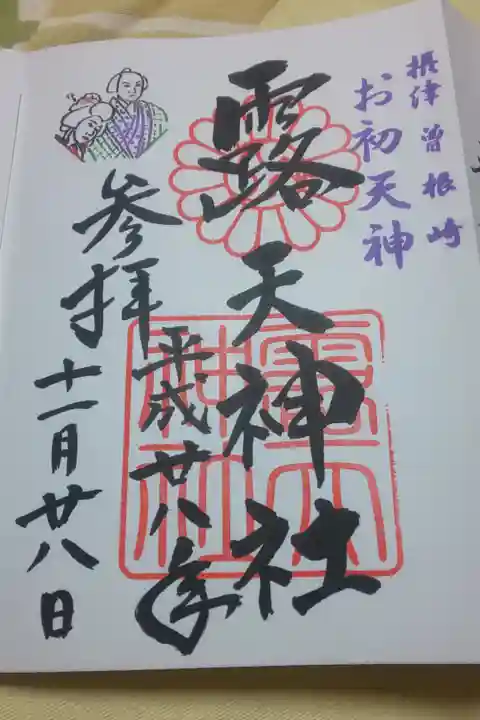 摂津曽根崎
お初天神
露天神社
参拝
平成廿八年
十一月廿八日